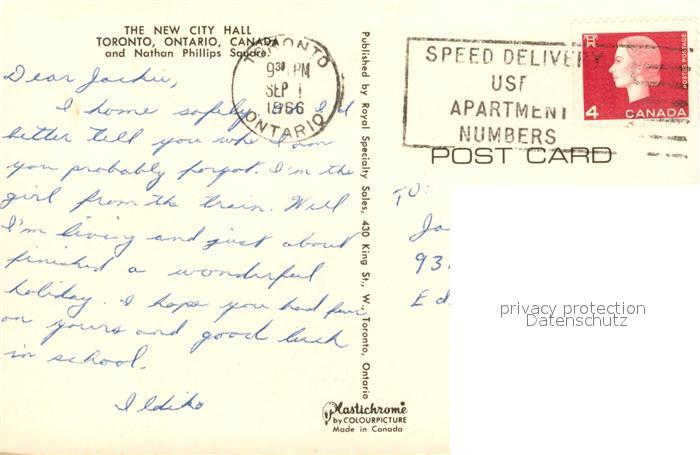 THE NEW CITY HALL
TORONTO, ONTARIO, CANADA
and Nathan Phillips Square
Dear Jackie,
I home safely. I'd
better tell you who I am
you probably forgot. I'm the
girl from the train. Well
I'm living and just about
finished a wonderful
holiday. I hope you had fun
on yours and good luck
in school.
Ildiko
TORONTO
9 30 PM
SEP 1
1966
ONTARIO
Published by Royal Specialty Sales, 430 King St., W., Toronto, Ontario
SPEED DELIVERY
USE
APARTMENT
NUMBERS
POSTES POSTAGE
4 CANADA
POST CARD
TO:
Ja
93
Ed
privacy protection
Datenschutz
Plastichrome
by COLOURPICTURE
Made in Canada